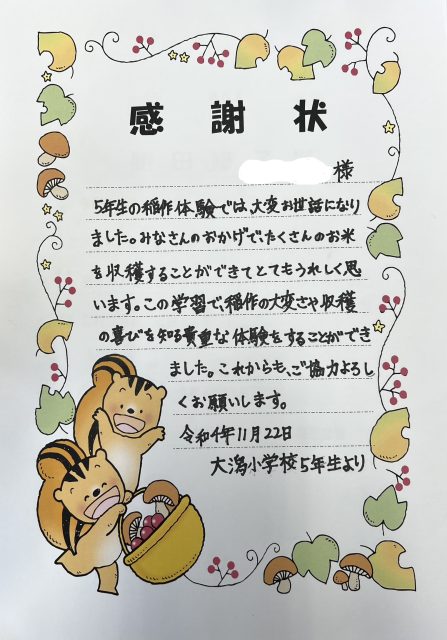 感謝状
様
5年生の稲作体験では、大変お世話になり
ました。みなさんのおかげで、たくさんのお米
を収穫することができてとてもうれしく思
います。この学習で、稲作の大変さや収穫
の喜びを知る貴重な体験をすることができ
ました。これからも、ご協力よろし
くお願いします。
令和4年11月22日
大潟小学校5年生より